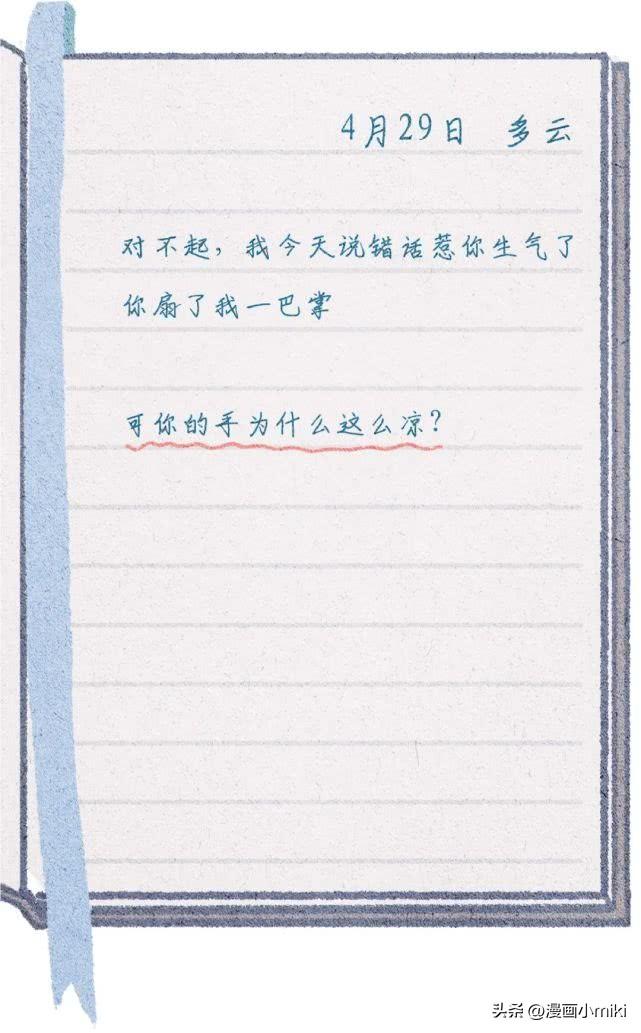 4月29日 多云
对不起，我今天说错话惹你生气了
你扇了我一巴掌
可你的手为什么这么凉？
头条 @漫画小miki